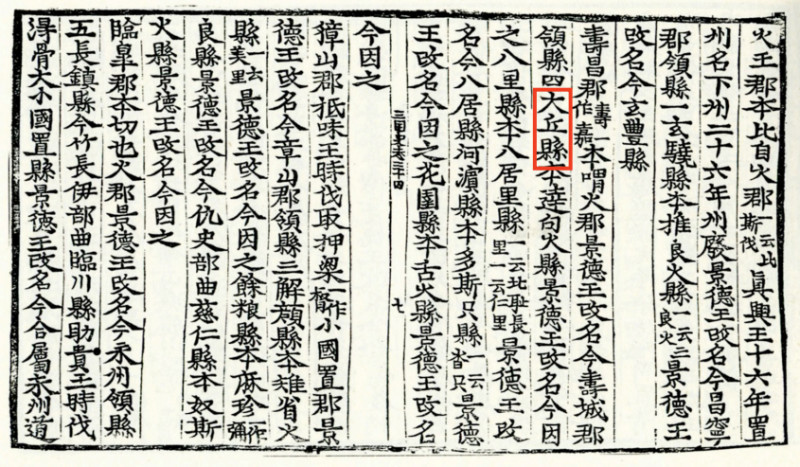 火王郡夲比自火郡一云比斯伐眞興王十六年置
州名下州二十六年州廢景德王改名今昌寧
郡領縣一玄驍縣夲推良火縣一云三良火景德王
改名今玄豊縣
壽昌郡壽一作嘉夲喟火郡景德王改名今壽城郡
領縣四大丘縣夲達句火縣景德王改名今因
之八里縣夲八居里縣一云北耻長里一云仁里景德王改
名今八居縣河濱縣夲多斯只縣一云沓只景德
王改名今因之花園縣夲舌火縣景德王改名
三十四 七
今因之
獐山郡祗味王時伐取押梁一作督小國置郡景
德王改名今章山郡領縣三解顔縣夲雉省火
縣一云美里景德王改名今因之餘粮縣夲麻珍一作彌
良縣景德王改名今仇史部曲慈仁縣夲奴斯
火縣景德王改名今因之
臨皐郡夲切也火郡景德王改名今永州領縣
五長鎮縣今竹長伊部曲臨川縣助賁王時伐
淂骨火小國置縣景德王改名今合屬永州道